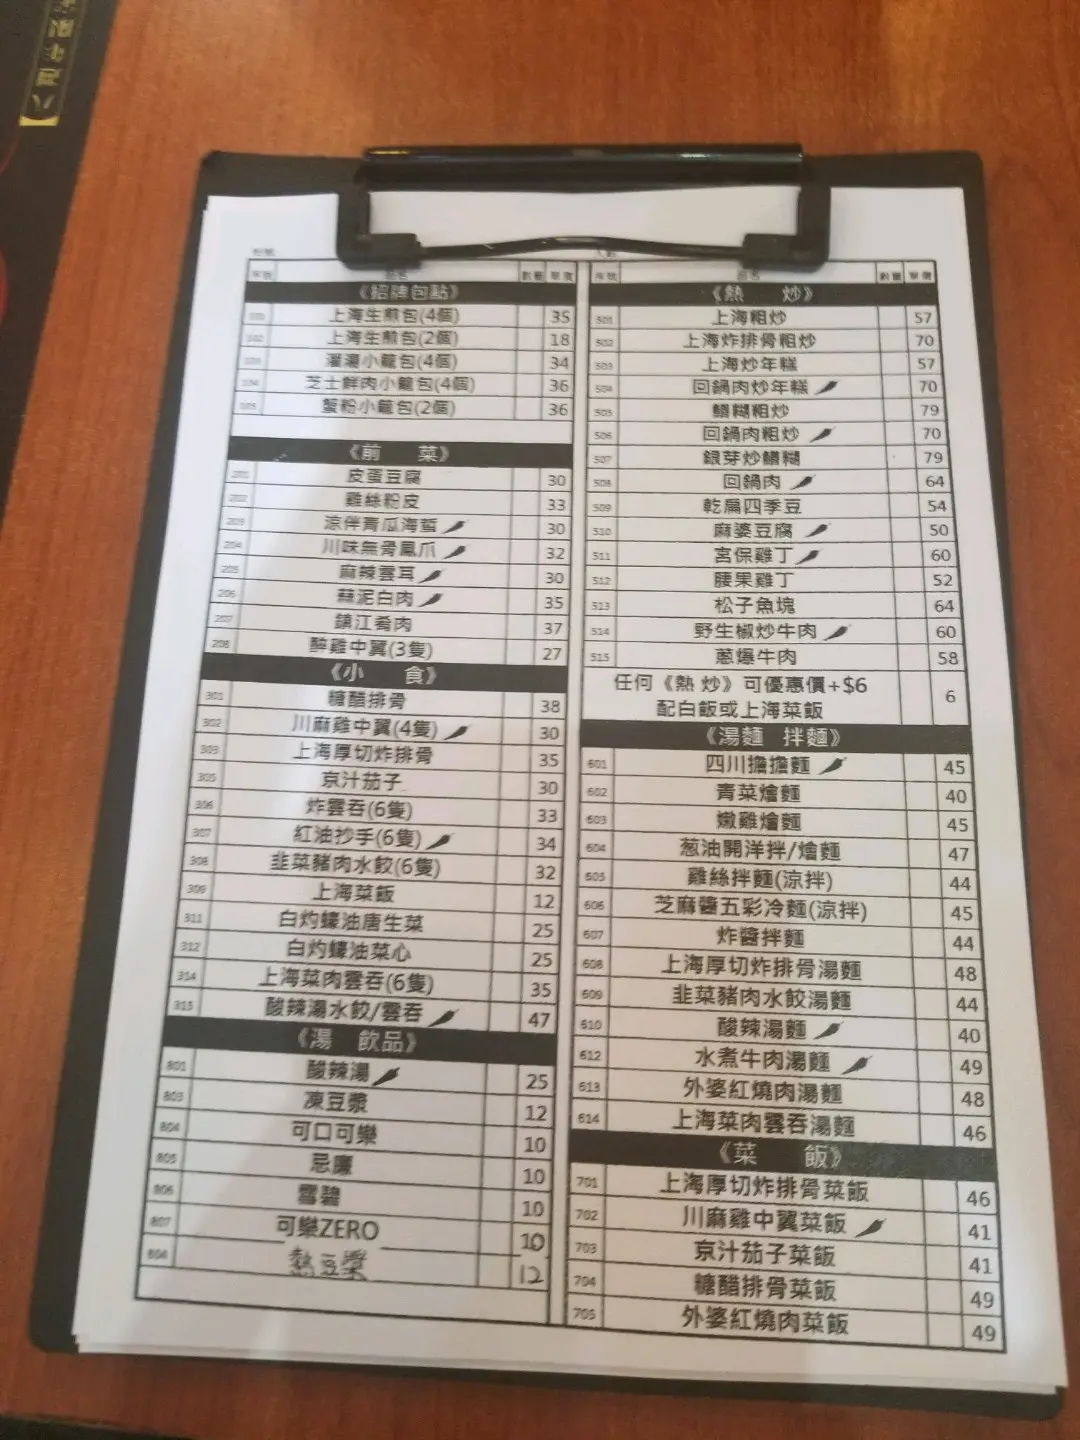 序號 品名 數量 單價
《招牌包點》
101 上海生煎包(4個) 35
102 上海生煎包(2個) 18
103 灌湯小籠包(4個) 34
104 芝士鮮肉小籠包(4個) 36
105 蟹粉小籠包(2個) 36
《前 菜》
201 皮蛋豆腐 30
202 雞絲粉皮 33
203 涼伴青瓜海蜇 30
204 川味無骨鳳爪 32
205 麻辣雲耳 30
206 蒜泥白肉 35
207 鎮江肴肉 37
208 醉雞中翼(3隻) 27
《小 食》
301 糖醋排骨 38
302 川麻雞中翼(4隻) 30
303 上海厚切炸排骨 35
305 京汁茄子 30
306 炸雲吞(6隻) 33
307 紅油抄手(6隻) 34
308 韭菜豬肉水餃(6隻) 32
309 上海菜飯 12
311 白灼蠔油唐生菜 25
312 白灼蠔油菜心 25
314 上海菜肉雲吞(6隻) 35
315 酸辣湯水餃/雲吞 47
《湯 飲品》
801 酸辣湯 25
803 凍豆漿 12
804 可口可樂 10
805 忌廉 10
806 雪碧 10
807 可樂ZERO 10
808 熱豆漿 12
序號 品名 數量 單價
《熱 炒》
501 上海粗炒 57
502 上海炸排骨粗炒 70
503 上海炒年糕 57
504 回鍋肉炒年糕 70
505 鱔糊粗炒 79
506 回鍋肉粗炒 70
507 銀芽炒鱔糊 79
508 回鍋肉 64
509 乾扁四季豆 54
510 麻婆豆腐 50
511 宮保雞丁 60
512 腰果雞丁 52
513 松子魚塊 64
514 野生椒炒牛肉 60
515 蔥爆牛肉 58
任何《熱 炒》可優惠價+$6
配白飯或上海菜飯 6
《湯麵 拌麵》
601 四川擔擔麵 45
602 青菜燴麵 40
603 嫩雞燴麵 45
604 葱油開洋拌/燴麵 47
605 雞絲拌麵(涼拌) 44
606 芝麻醬五彩冷麵(涼拌) 45
607 炸醬拌麵 44
608 上海厚切炸排骨湯麵 48
609 韭菜豬肉水餃湯麵 44
610 酸辣湯麵 40
612 水煮牛肉湯麵 49
613 外婆紅燒肉湯麵 48
614 上海菜肉雲吞湯麵 46
《菜 飯》
701 上海厚切炸排骨菜飯 46
702 川麻雞中翼菜飯 41
703 京汁茄子菜飯 41
704 糖醋排骨菜飯 49
705 外婆紅燒肉菜飯 49